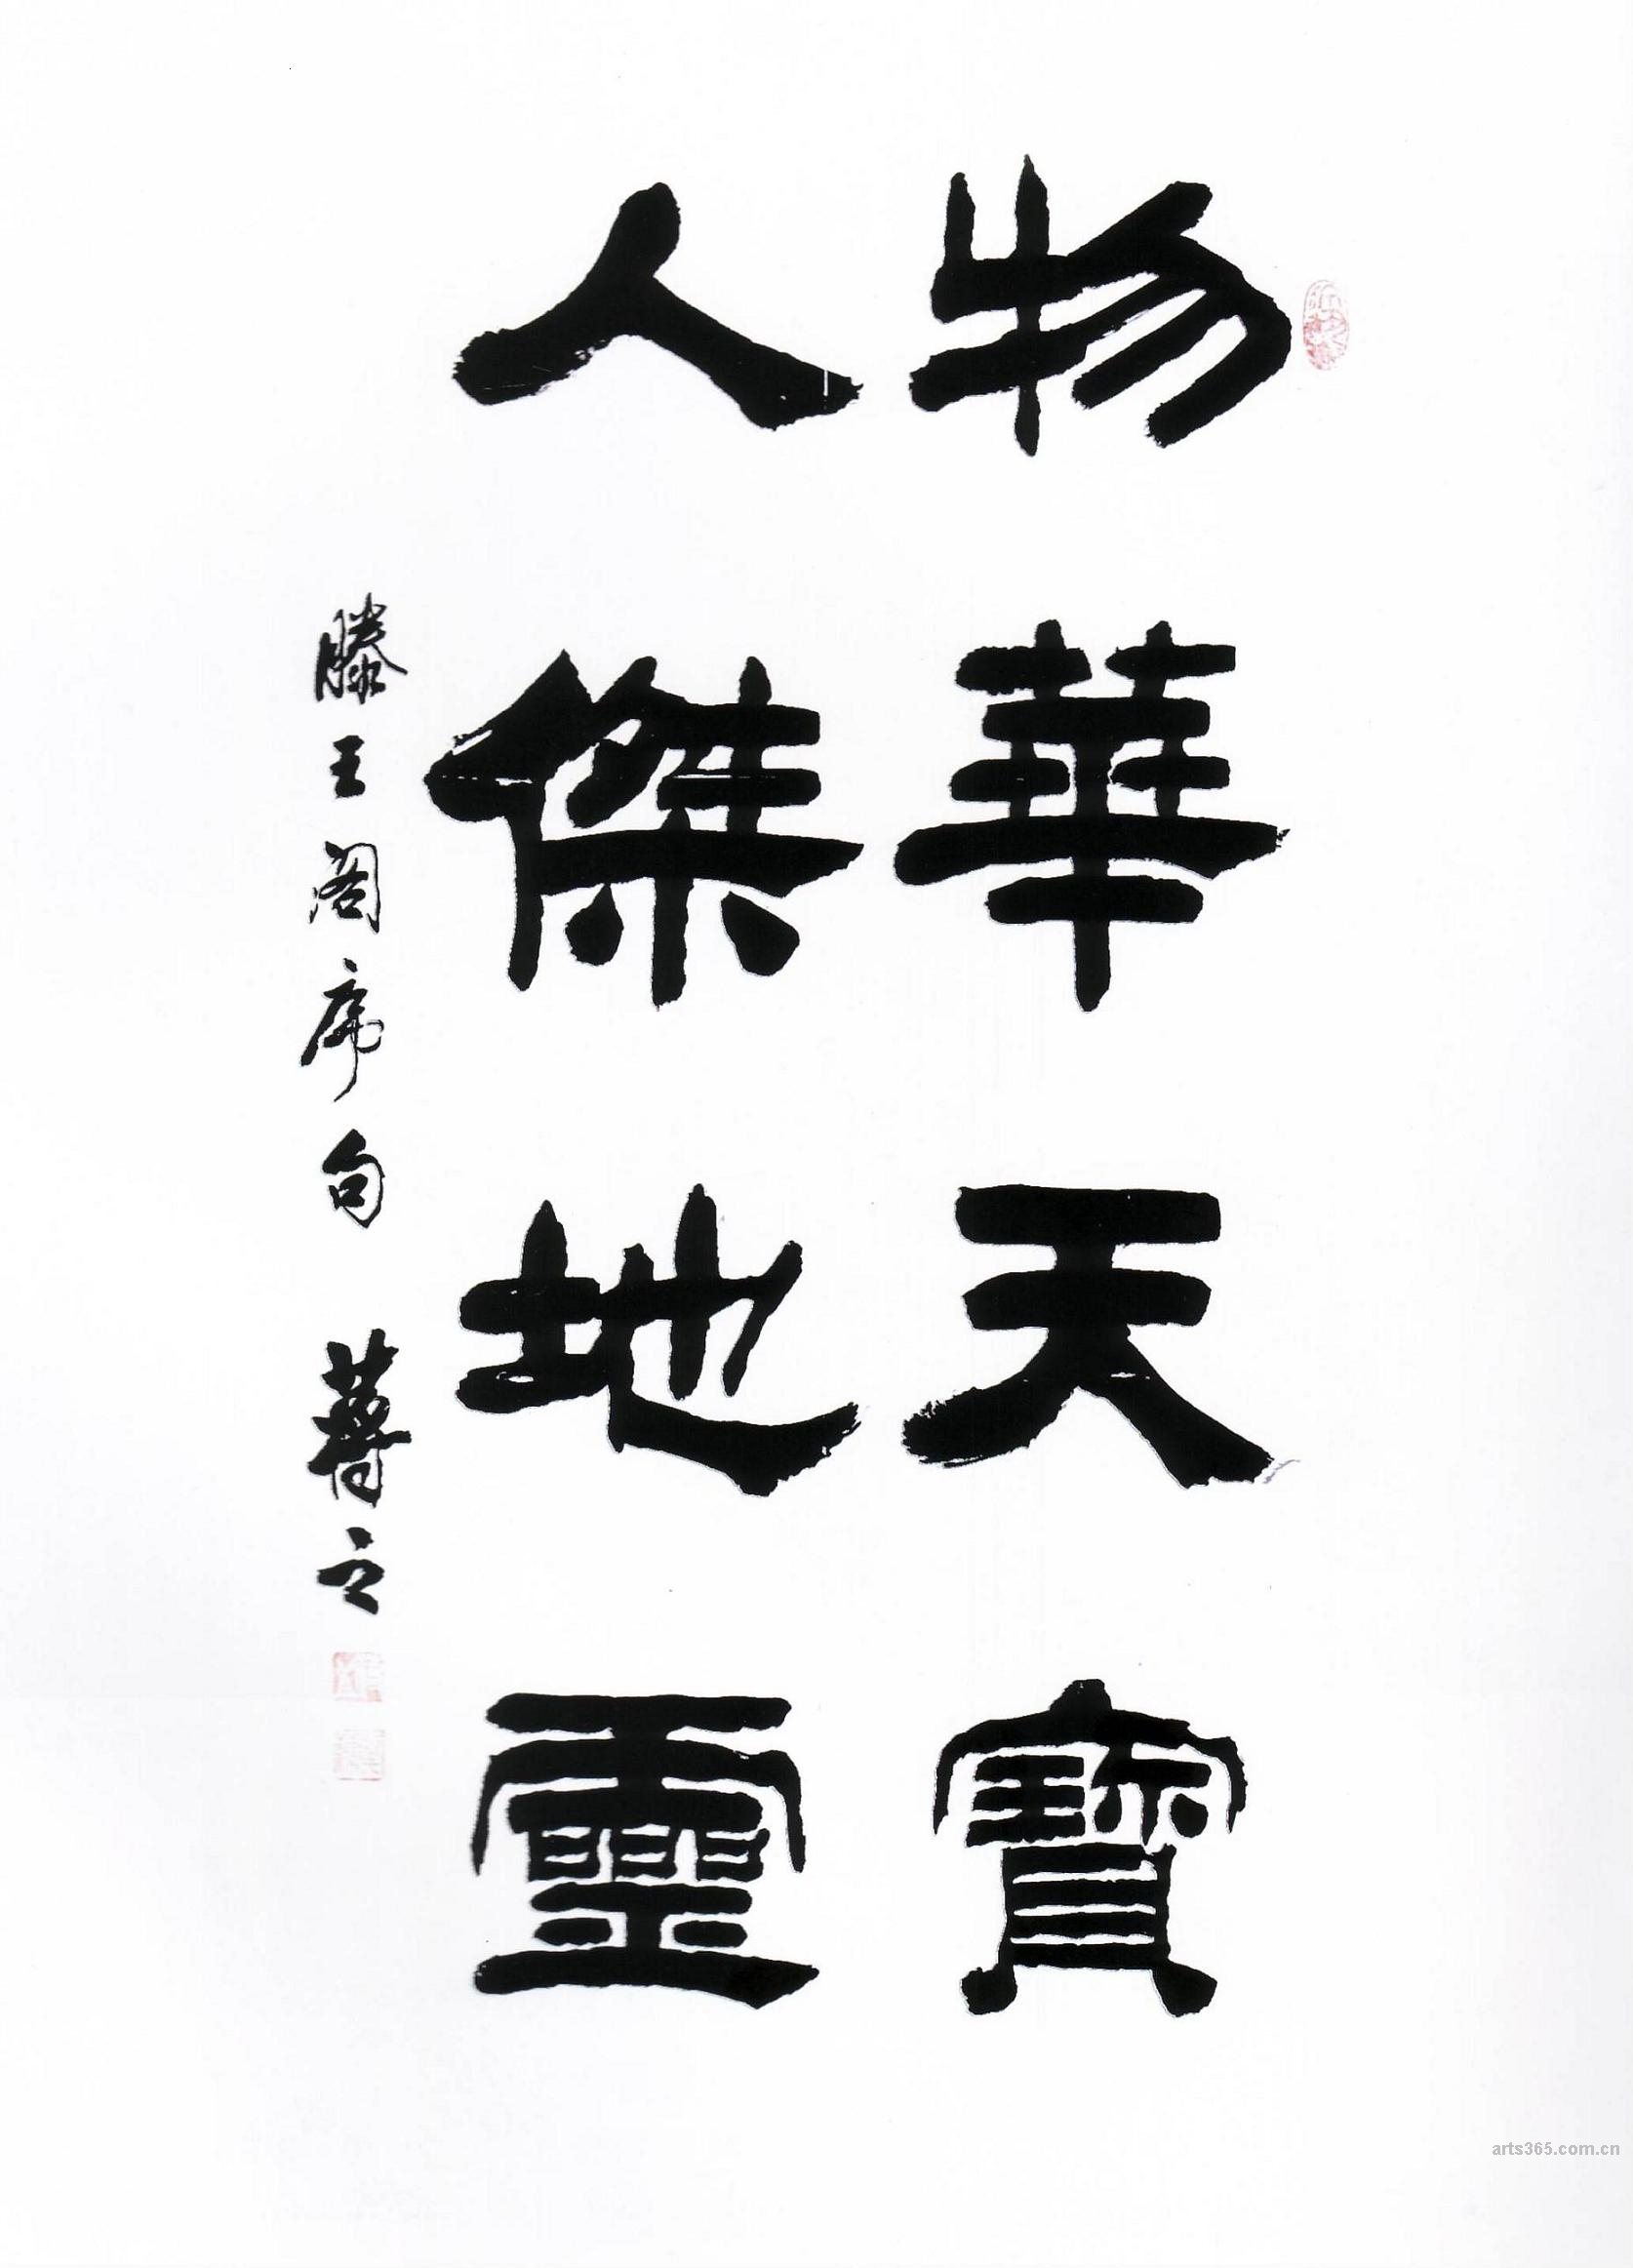 物華天寶
人傑地靈
滕王阁序句 蔣立
arts365.com.cn